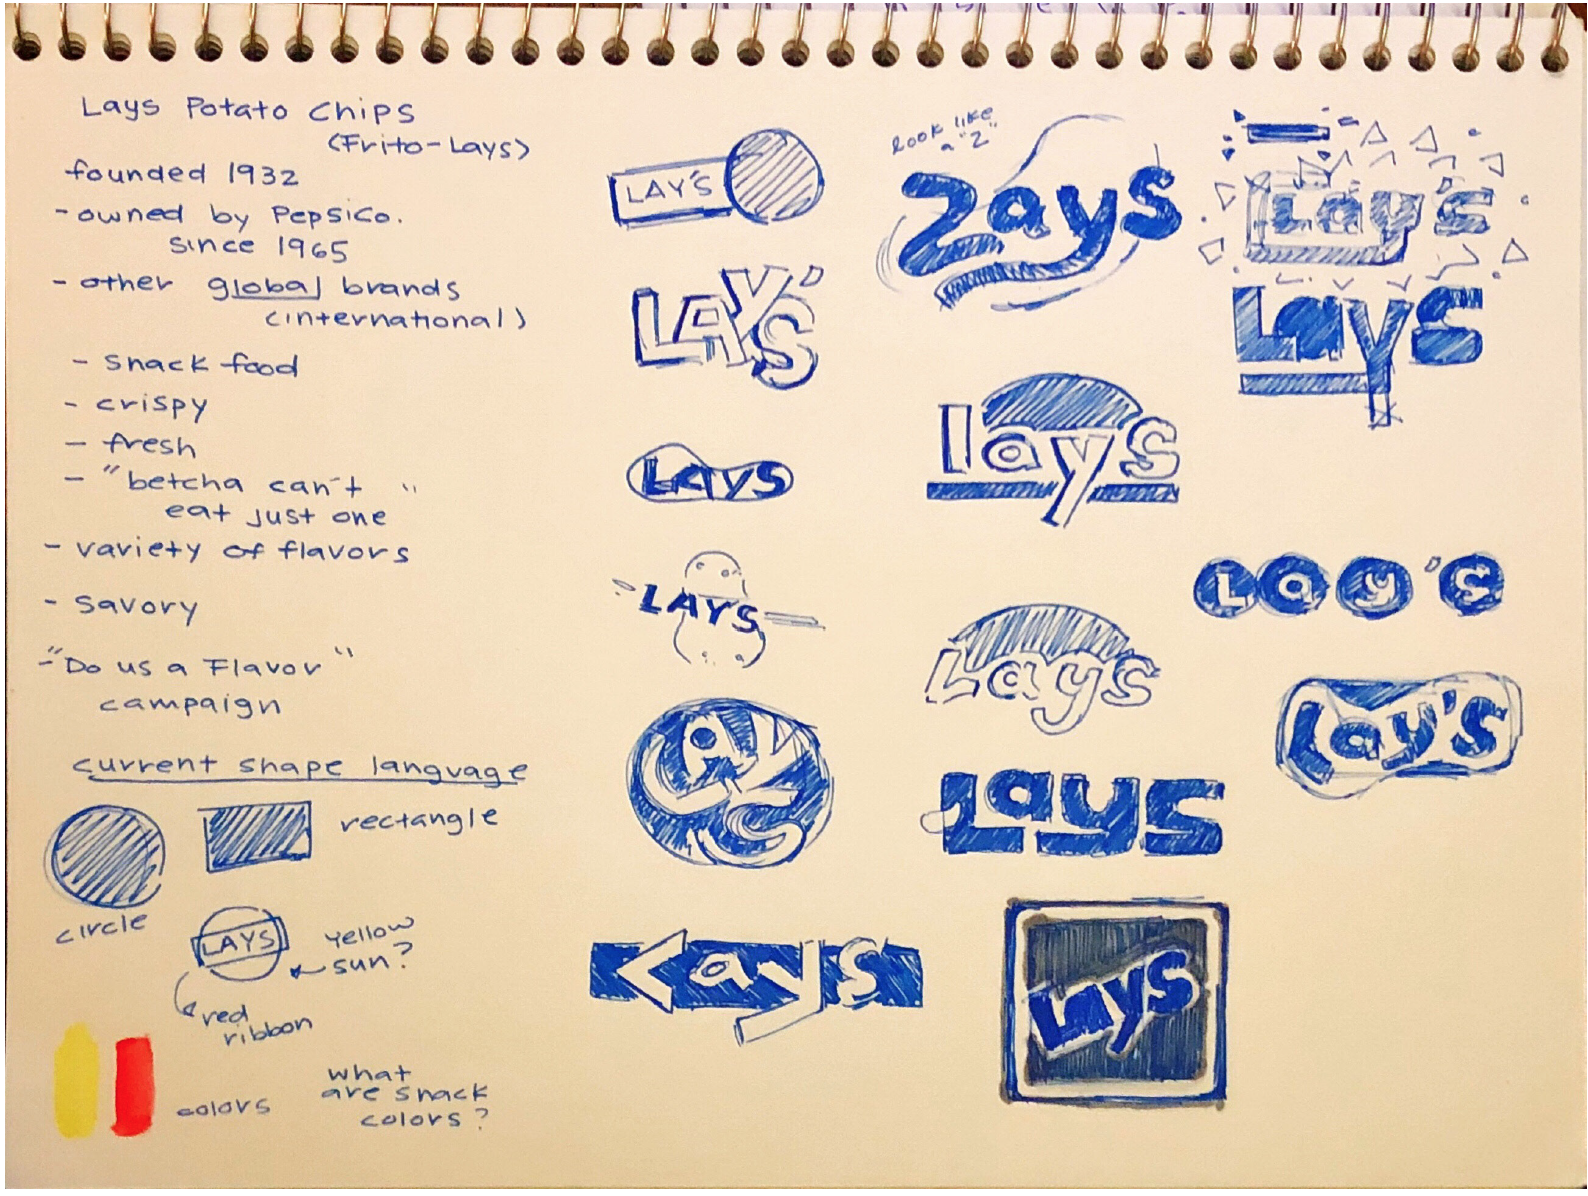 Lays Potato Chips
(Frito-Lays)
founded 1932
- owned by Pepsico.
since 1965
- other global brands
(international)
- snack food
- crispy
- fresh
- "betcha can't "
eat just one
- variety of flavors
- savory
- "Do us a Flavor"
campaign
current shape language
circle
rectangle
LAYS
yellow
sun?
red
ribbon
colors
what
are snack
colors?
LAY'S
LAY'S
Lays
LAYS
LAYS
Lays
look like
a "Z"
Lays
lays
Lays
Lays
Lays
Lay's
Lays
Lay's
Lay's